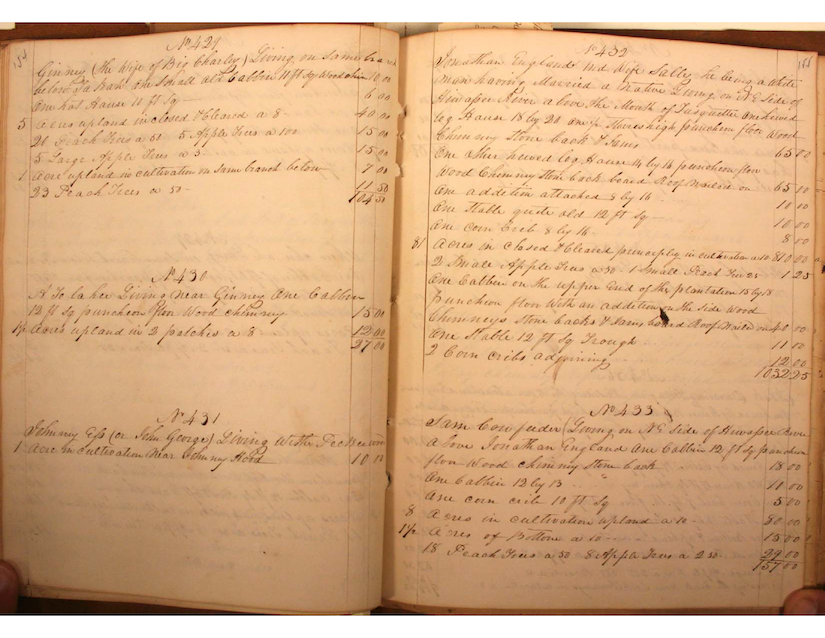 154
No 429
Ginney (the Wife of Big Charley) Living on Same branch
below Cabbin one Small old Cabbin 11 ft Sq Wood chim 10 00
One hot House 11 ft Sq — 6 00
5 Acres upland inclosed & Cleared a 8 — 40 00
21 Peach Trees a 50 5 Apple Trees a 100 15 00
5 Large Apple Trees a 3 — 15 00
1 Acre upland in cultivation on Same branch below 7 00
23 Peach Trees a 50 — 11 50
104 50
No 430
living near Ginney One Cabbin
12 ft Sq puncheon floor Wood chimney 15 00
1½ Acres upland in 2 patches a 8 — 12 00
27 00
No 431
Johnny (or John George) Living With
1 Acre in Cultivation Near Chimney 10 00
No 432
155
Jonathan England and Wife Sally he being a White
man having Married a Native Living on N.E Side of
Hiwassee River above the Mouth of one hewed
log House 18 by 20 one ½ Stories high puncheon floor Wood
Chimney Stone back & Jams 65 00
One other hewed log House 14 by 16 puncheon floor
Wood Chimney Stone back board Roof Nailed on 65 00
One addition attached 8 by 16 10 00
One Stable quite old 12 ft Sq — 10 00
One corn Crib 8 by 16 — 8 00
81 Acres in closed & Cleared principley in cultivation a 10 810 00
2 Small Apple Trees a 50 — 1 Small Peach Tree 25 1 25
One Cabbin on the upper End of the plantation 15 by 18
puncheon floor With an addition on the Side Wood
Chimneys Stone backs & Jams board Roof Nailed on 40 00
One Stable 12 ft Sq Trough 11 00
2 Corn cribs adjoining 12 00
1032 25
No 433
Sam Cowfeeder (Living on N.E Side of Hiwassee River
above Jonathan England One Cabbin 12 ft Sq puncheon
floor Wood Chimney Stone back 18 00
One Cabbin 12 by 13 11 00
One corn crib 10 ft Sq 5 00
8 Acres in cultivation upland a 10 — 80 00
1½ Acres of Bottom a 10 — 15 00
18 Peach Trees a 50 8 Apple Trees a 2 50 29 00
157 00